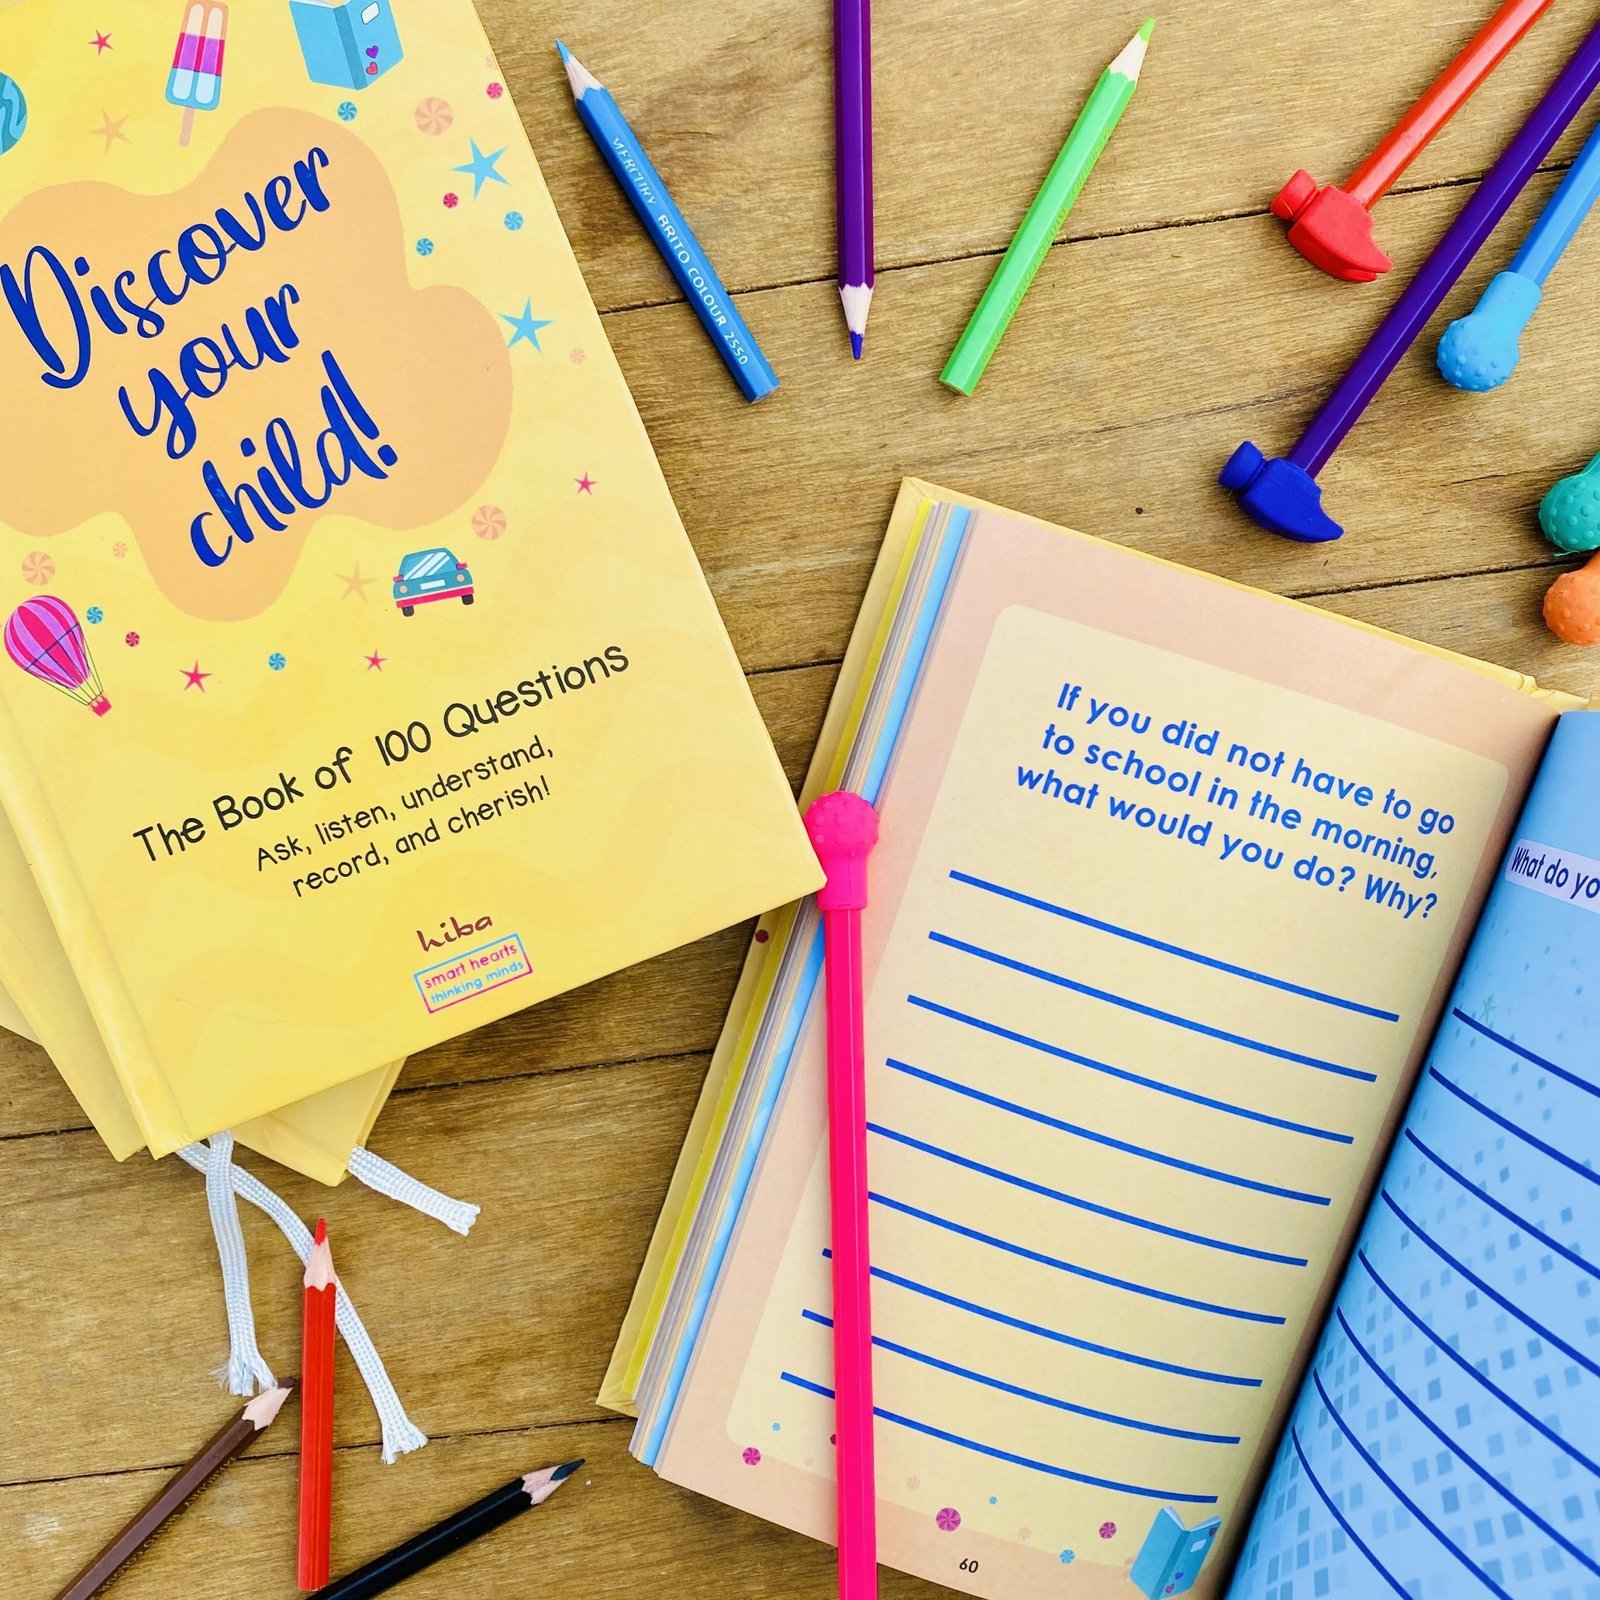 Discover
your
child!
The Book of 100 Questions
Ask, listen, understand,
record, and cherish!
hiba
smart hearts
thinking minds
MERCURY BRITO COLOUR 2550
If you did not have to go
to school in the morning,
what would you do? Why?
60
What do yo